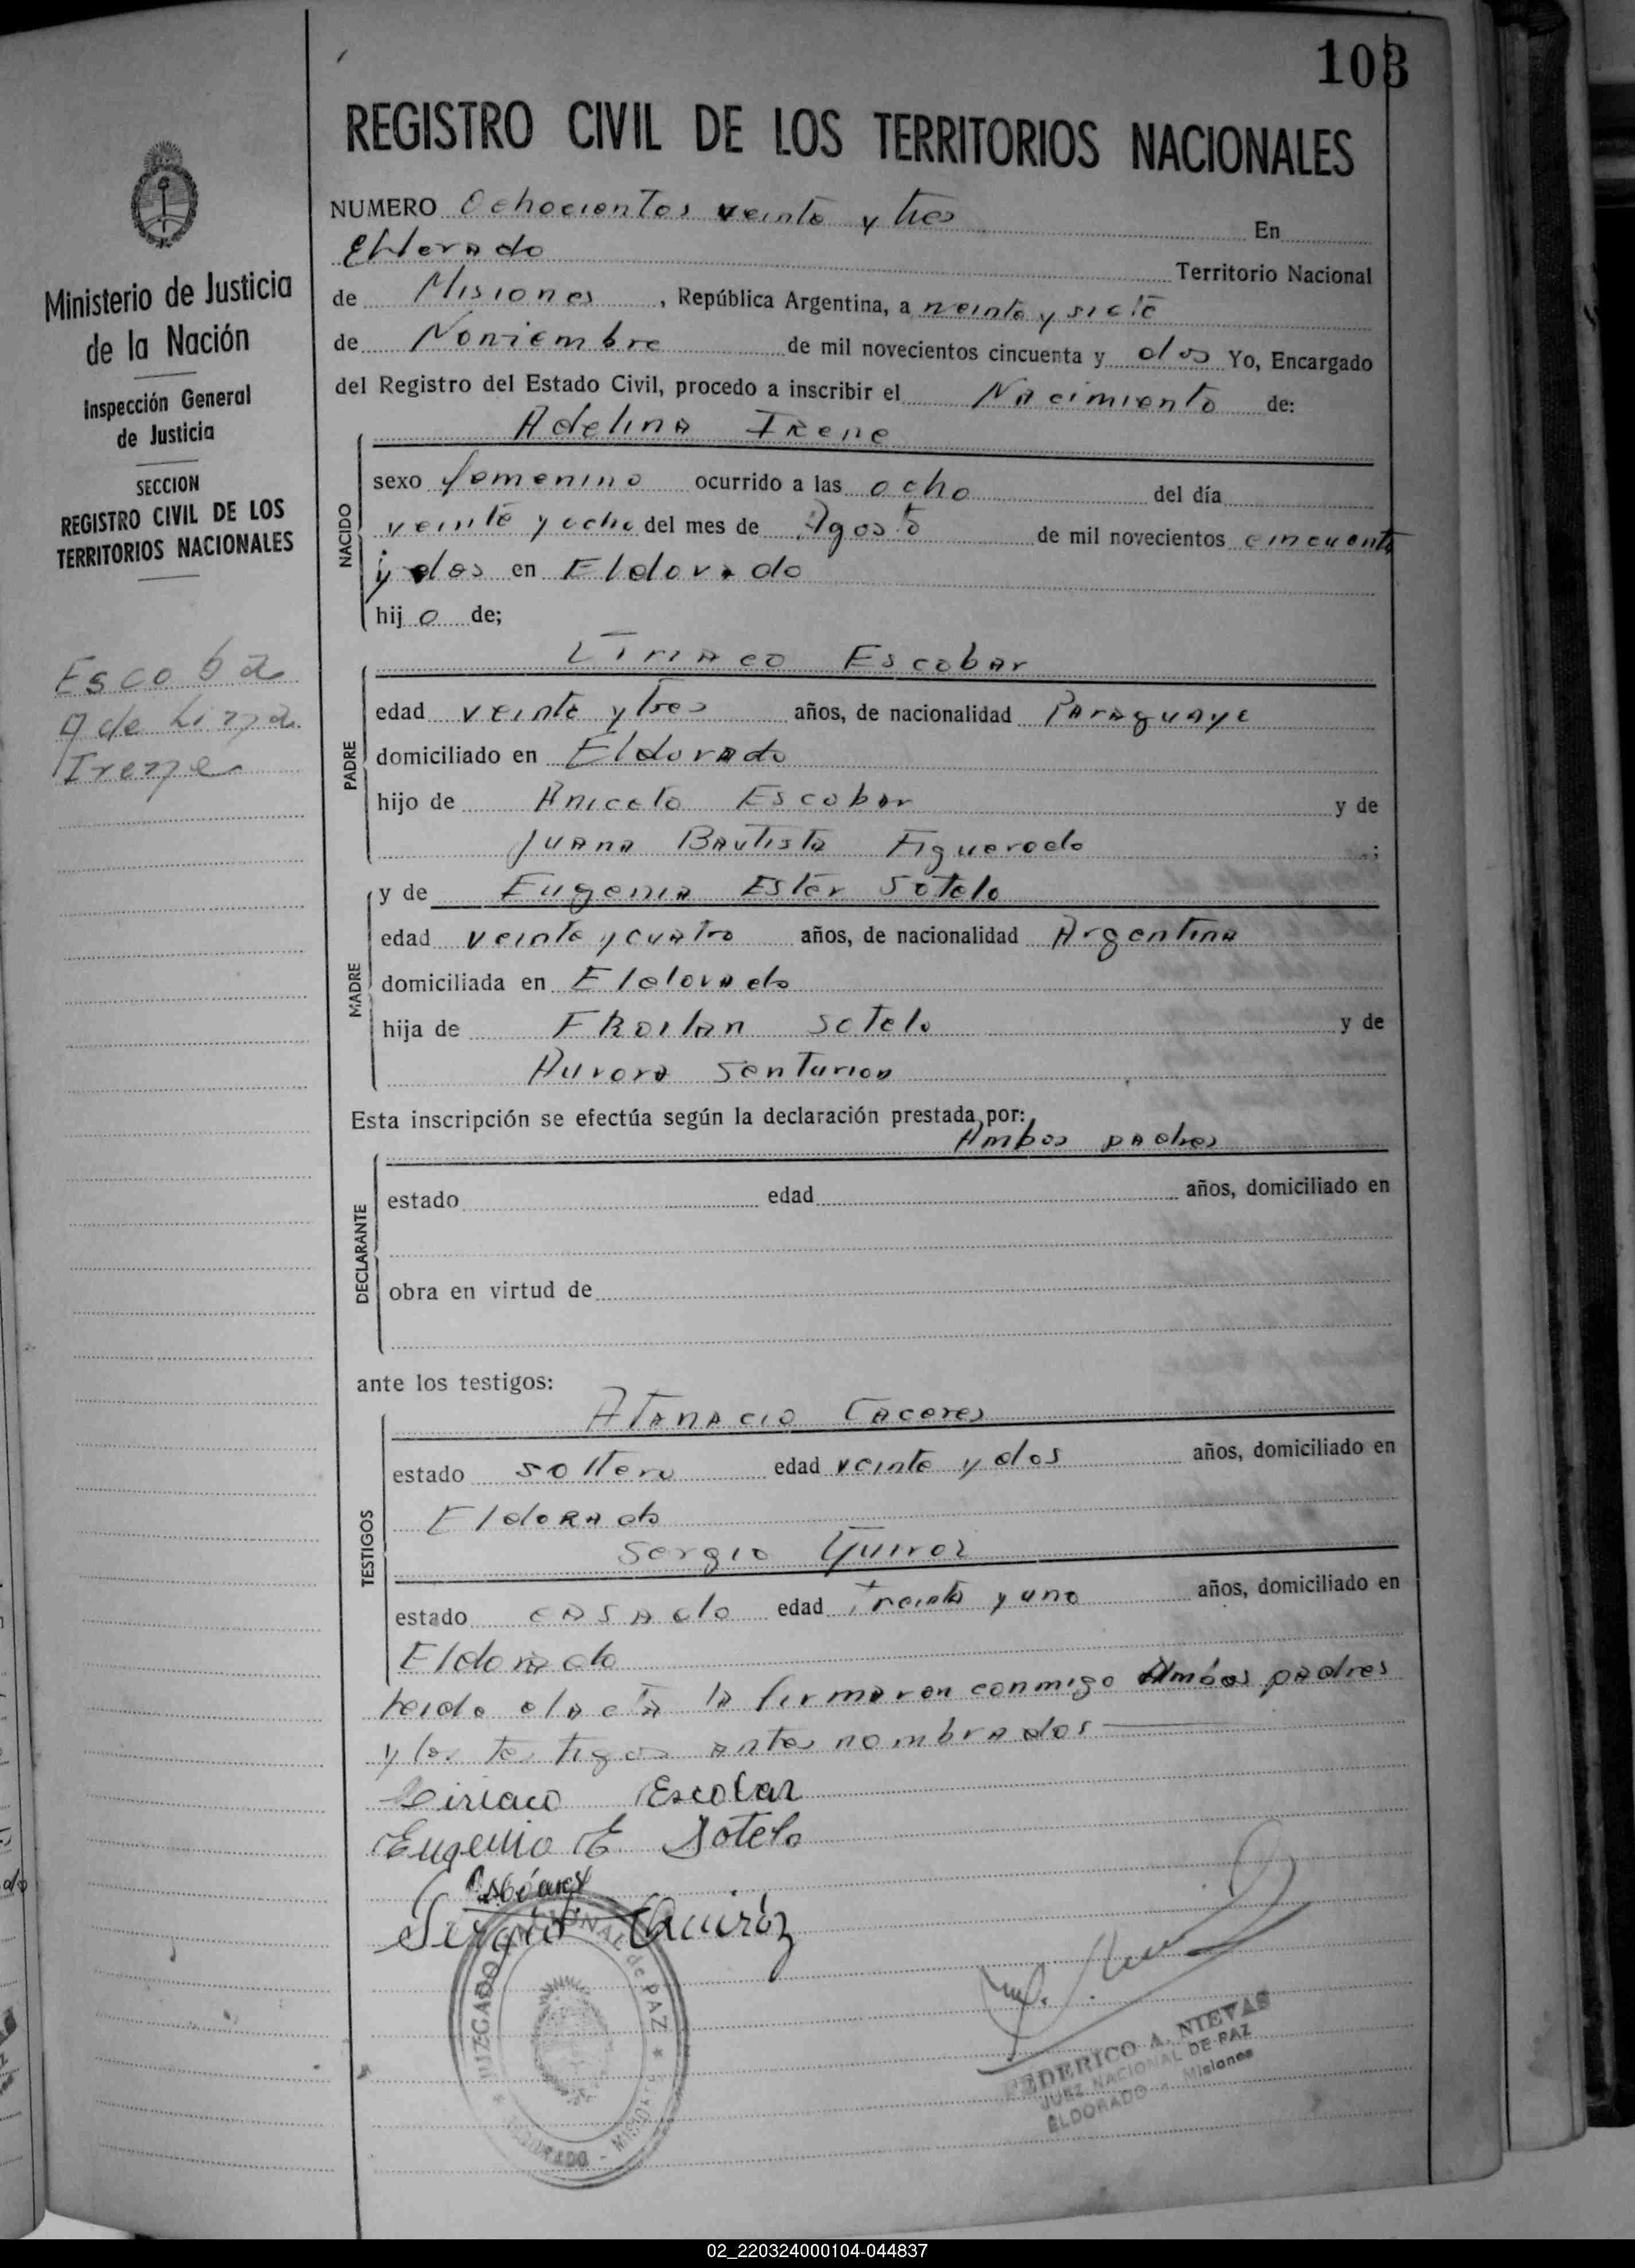 103
REGISTRO CIVIL DE LOS TERRITORIOS NACIONALES
Ministerio de Justicia
de la Nación
Inspección General
de Justicia
SECCION
REGISTRO CIVIL DE LOS
TERRITORIOS NACIONALES
Escoba
Adelina
Irene
NUMERO Ochocientos veinte y tres En
Eldorado Territorio Nacional
de Misiones, República Argentina, a veinte y siete
de Noviembre de mil novecientos cincuenta y dos Yo, Encargado
del Registro del Estado Civil, procedo a inscribir el Nacimiento de:
Adelina Irene
NACIDO
sexo femenino ocurrido a las ocho del día
veinte y ocho del mes de Agosto de mil novecientos cincuenta
y dos en Eldorado
hij o de;
Ciriaco Escobar
PADRE
edad veinte y tres años, de nacionalidad Paraguaye
domiciliado en Eldorado
hijo de Aniceto Escobar y de
Juana Bautista Figueredo ;
y de Eugenia Ester Sotelo
MADRE
edad veinte y cuatro años, de nacionalidad Argentina
domiciliada en Eldorado
hija de Froilan Sotelo y de
Aurora Senturion
Esta inscripción se efectúa según la declaración prestada por:
Ambos padres
DECLARANTE
estado edad años, domiciliado en
obra en virtud de
ante los testigos:
Atanacio Caceres
TESTIGOS
estado soltero edad veinte y dos años, domiciliado en
Eldorado
Sergio Quiroz
estado casado edad treinta y uno años, domiciliado en
Eldorado
Leida el acta la firmaron conmigo Ambos padres
y los testigos antes nombrados
Ciriaco Escobar
Eugenia E Sotelo
Sergio Quiróz
JUZGADO NACIONAL de PAZ
ELDORADO - MISIONES
FEDERICO A. NIEVAS
JUEZ NACIONAL DE PAZ
ELDORADO - Misiones
02_220324000104-044837